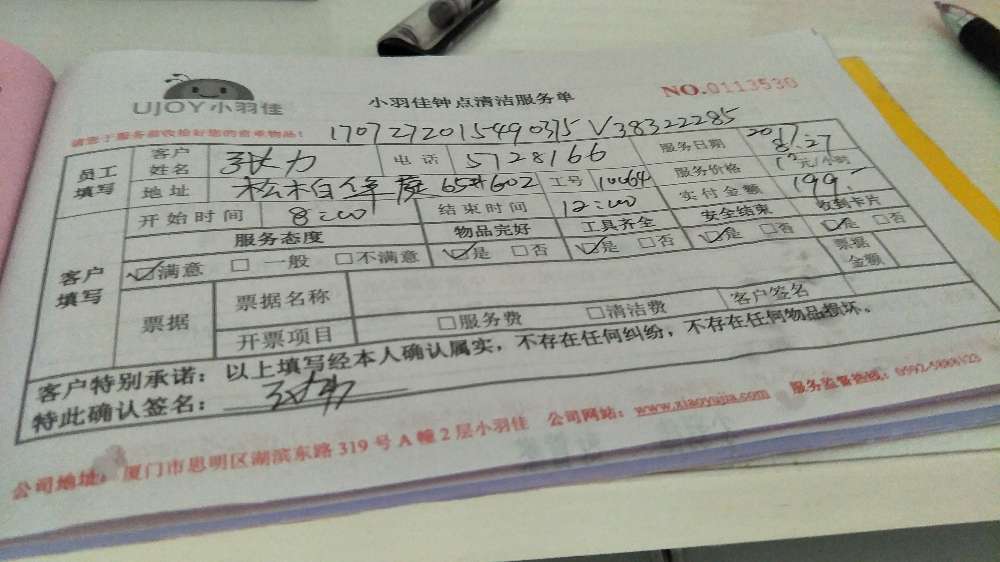 UJOY小羽佳 小羽佳钟点清洁服务单 NO.0113530
请您于服务前收拾好您的贵重物品! 1707272015490375 V38322285
员工填写 客户姓名 张力 电话 5728166 服务日期 2017 8.27
地址 松柏 65#602 工号 10064 服务价格 元/小时
开始时间 8:00 结束时间 12:00 实付金额 199.-
客户填写 服务态度 物品完好 工具齐全 安全结束 收到卡片
☑满意 □一般 □不满意 ☑是 □否 ☑是 □否 ☑是 □否 ☑是 □否
票据 票据名称 票据金额
开票项目 □服务费 □清洁费 客户签名
客户特别承诺:以上填写经本人确认属实,不存在任何纠纷,不存在任何物品损坏。
特此确认签名: 张力
公司地址:厦门市思明区湖滨东路319号A幢2层小羽佳 公司网站:www.xiaoyujia.com 服务监督热线: